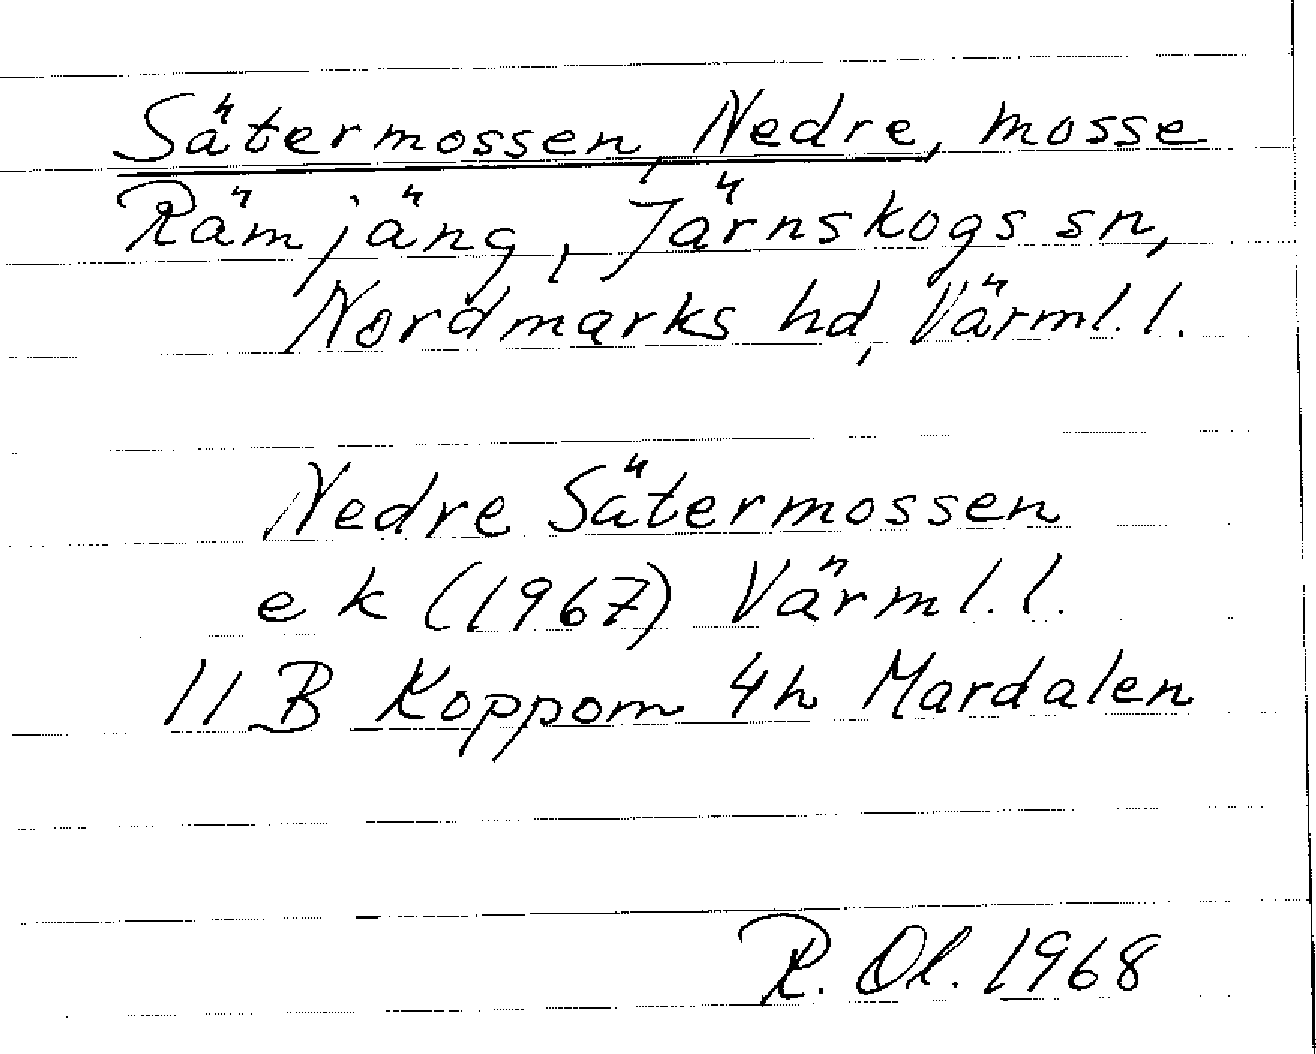 Sätermossen, Nedre, mosse
Rämjäng, Järnskogs sn,
Nordmarks hd, Värml. l.
Nedre Sätermossen
e k (1967) Värml. l.
11 B Koppom 4h Mardalen
R. Ol. 1968